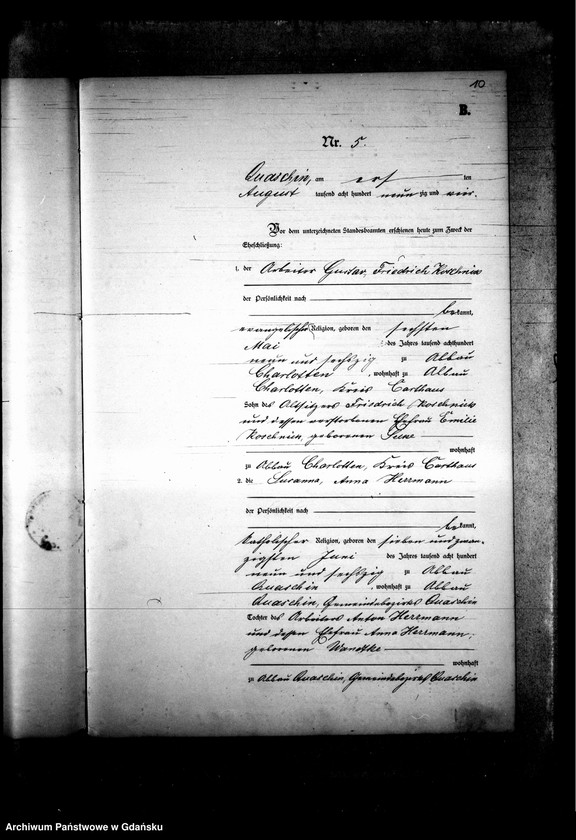 10
B.
Nr. 5.
Quaschin, am ersten
August tausend acht hundert neunzig und vier.
Vor dem unterzeichneten Standesbeamten erschienen heute zum Zweck der
Eheschließung:
1. der Arbeiter Gustav, Friedrich Koschnick
der Persönlichkeit nach
bekannt,
evangelischer Religion, geboren den sechsten
Mai des Jahres tausend achthundert
neun und sechszig zu Abbau
Charlotten, wohnhaft zu Abbau
Charlotten, Kreis Carthaus
Sohn des Altsitzers Friedrich Koschnick
und dessen verstorbenen Ehefrau Emilie
Koschnick, geborenen
wohnhaft
zu Abbau Charlotten, Kreis Carthaus
2. die Susanna, Anna Herrmann
der Persönlichkeit nach
bekannt,
katholischer Religion, geboren den sieben und zwan-
zigsten Juni des Jahres tausend acht hundert
neun und sechszig zu Abbau
Quaschin, wohnhaft zu Abbau
Quaschin, Gemeindebezirks Quaschin
Tochter des Arbeiters Anton Herrmann
und dessen Ehefrau Anna Herrmann,
geborenen
wohnhaft
zu Abbau Quaschin, Gemeindebezirk Quaschin
Archiwum Państwowe w Gdańsku